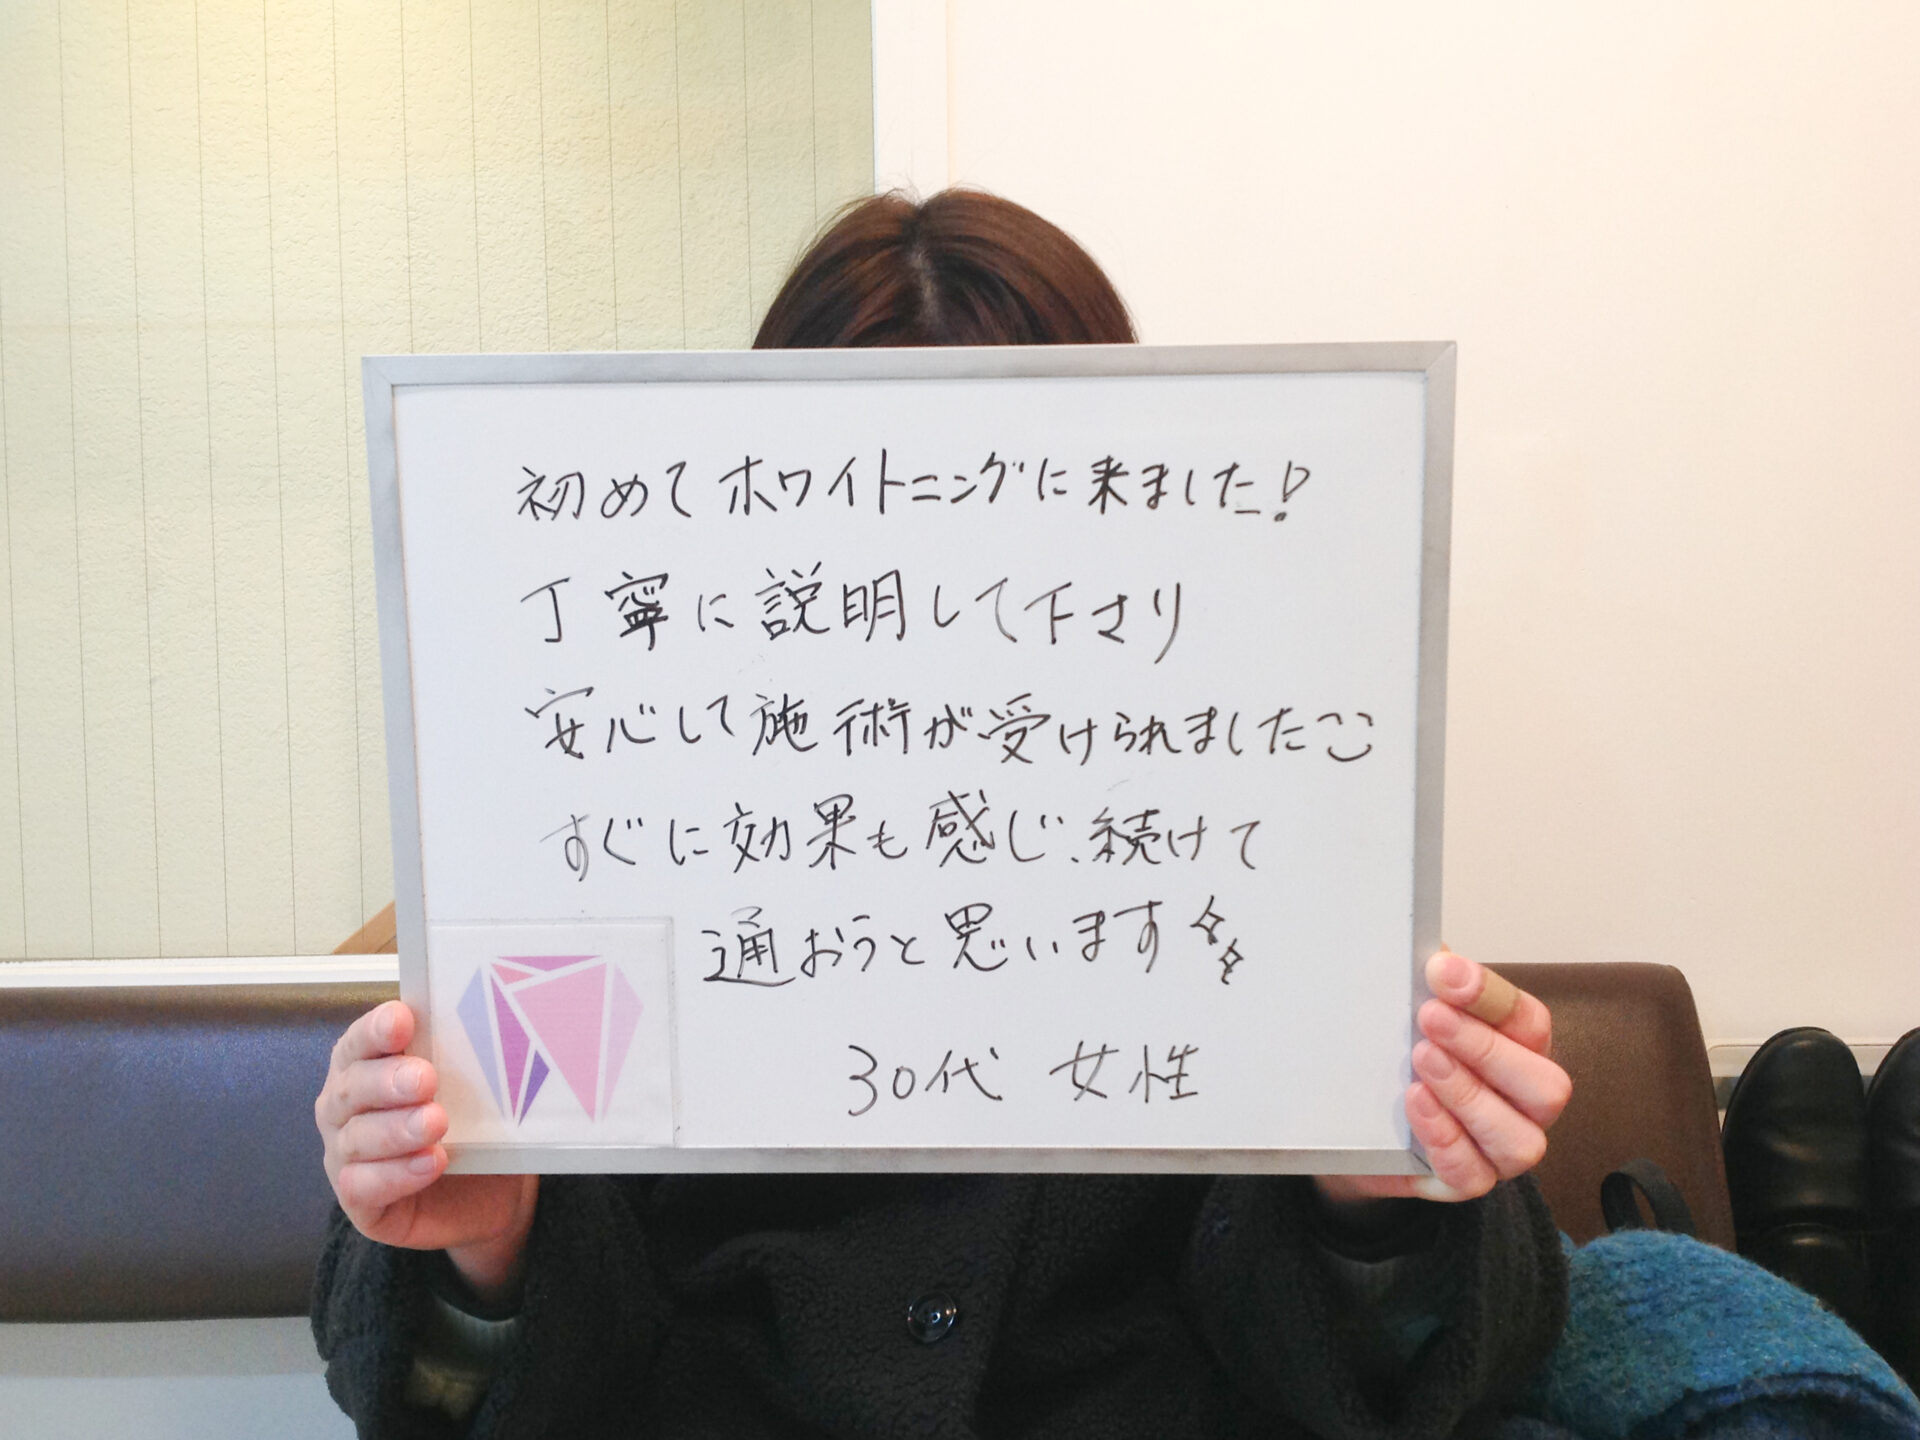 初めてホワイトニングに来ました!
丁寧に説明して下さり
安心して施術が受けられました
すぐに効果も感じ、続けて
通おうと思います
30代 女性